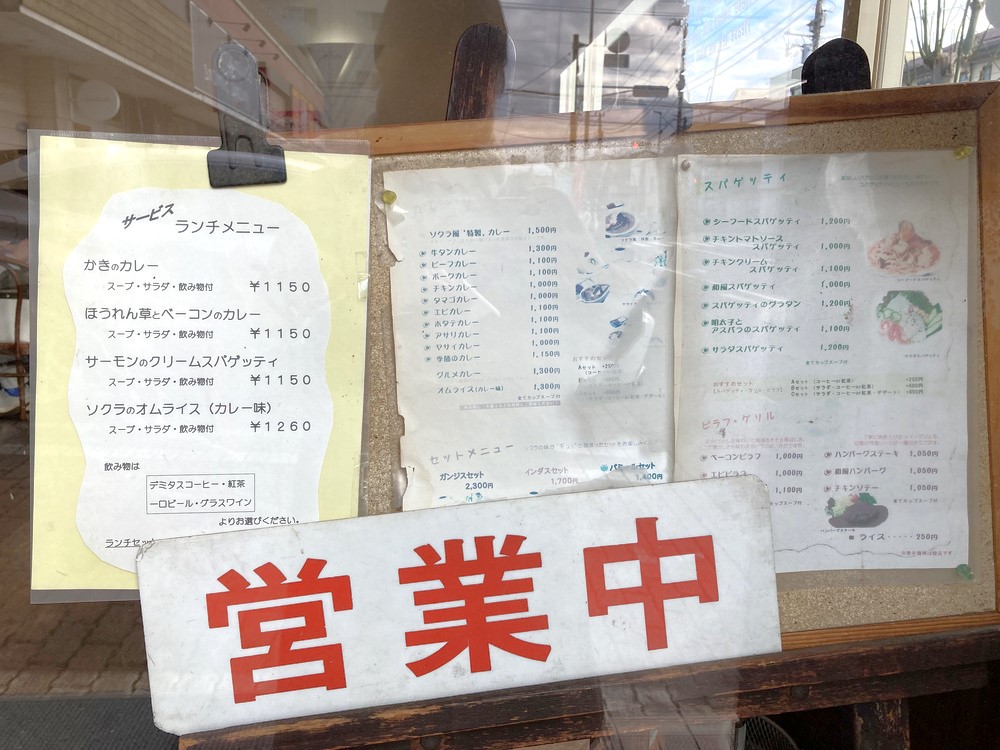 サービス
ランチメニュー
かきのカレー
スープ・サラダ・飲み物付 ￥1150
ほうれん草とベーコンのカレー
スープ・サラダ・飲み物付 ￥1150
サーモンのクリームスパゲッティ
スープ・サラダ・飲み物付 ￥1150
ソクラのオムライス（カレー味）
スープ・サラダ・飲み物付 ￥1260
飲み物は
デミタスコーヒー・紅茶
一口ビール・グラスワイン
よりお選びください。
ランチセット
ソクラ風"特製"カレー 1,500円
牛タンカレー 1,300円
ビーフカレー 1,100円
ポークカレー 1,100円
チキンカレー 1,000円
タマゴカレー 1,000円
エビカレー 1,100円
ホタテカレー 1,100円
アサリカレー 1,100円
ヤサイカレー 1,000円
季節のカレー 1,150円
グルメカレー 1,300円
オムライス(カレー味) 1,300円
全てカップスープ付
セットメニュー
ガンジスセット
2,300円
インダスセット
1,700円
セット
1,400円
スパゲッティ
シーフードスパゲッティ 1,200円
チキントマトソース
スパゲッティ 1,000円
チキンクリーム
スパゲッティ 1,100円
和風スパゲッティ 1,000円
スパゲッティのグラタン 1,200円
明太子と
アスパラのスパゲッティ 1,100円
サラダスパゲッティ 1,200円
全てカップスープ付
おすすめセット
Aセット（コーヒーor紅茶）
Bセット（サラダ・コーヒーor紅茶）
Cセット（サラダ・コーヒーor紅茶・デザート）
ピラフ・グリル
ベーコンピラフ 1,000円
エビピラフ 1,000円
1,100円
ハンバーグステーキ 1,050円
和風ハンバーグ 1,050円
チキンソテー 1,050円
全てカップスープ付
ハンバーグステーキ
ライス・・・・・250円
営業中